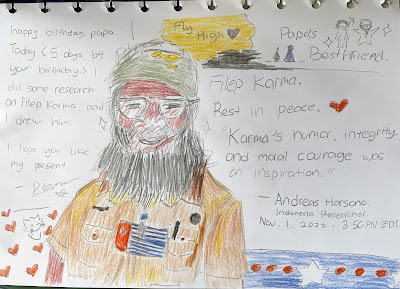 happy birthday papa.
Today (5 days b4
your birthday.) I
did some research
on Filep Karma. and
I drew him.
I hope you like
my present.
Fly
High
Papa's
Bestfriend.
Filep Karma.
Rest in peace.
"Karma's humor, integrity,
and moral courage was
an inspiration."
- Andreas Harsono.
Indonesia Researcher.
Nov. 1, 2022. 3:50 PM EDT.